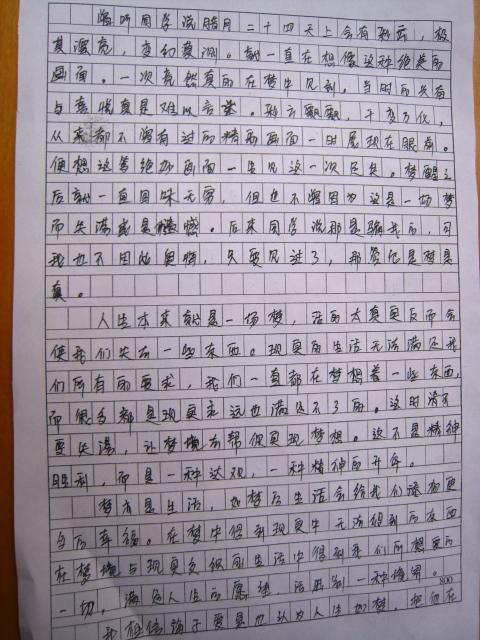 曾听同学说腊月二十四天上会有彩云，极
其漂亮，变幻莫测。就一直在想像这种绝美的
画面。一次竟然真的在梦中见到。当时的兴奋
与喜悦真是难以言表。彩云飘飘，千变万化，
从来都不曾有过的精彩画面一时展现在眼前。
便想这等绝妙画面一生见这一次足矣。梦醒之
后就一直回味无穷，但也不曾因为这是一场梦
而失落或是遗憾。后来同学说那是骗我的，可
我也不因此懊悔，只要见过了，那管它是梦是
真。
人生本来就是一场梦，活的太真实反而会
使我们失去一些东西。现实的生活无法满足我
们所有的要求，我们一直都在梦想着一些东西，
而很多都是现实永远也满足不了的。这时请不
要失落，让梦境去帮你实现梦想。这不是精神
胜利，而是一种达观，一种精神的升华。
梦亦是生活，如梦的生活会给我们添加更
多的幸福。在梦中得到现实中无法得到的东西
在梦境与现实交织的生活中得到我们所想要的
一切，满足人生的愿望，活出别一种境界。
800
我相信庄子要是也认为人生如梦，把他在